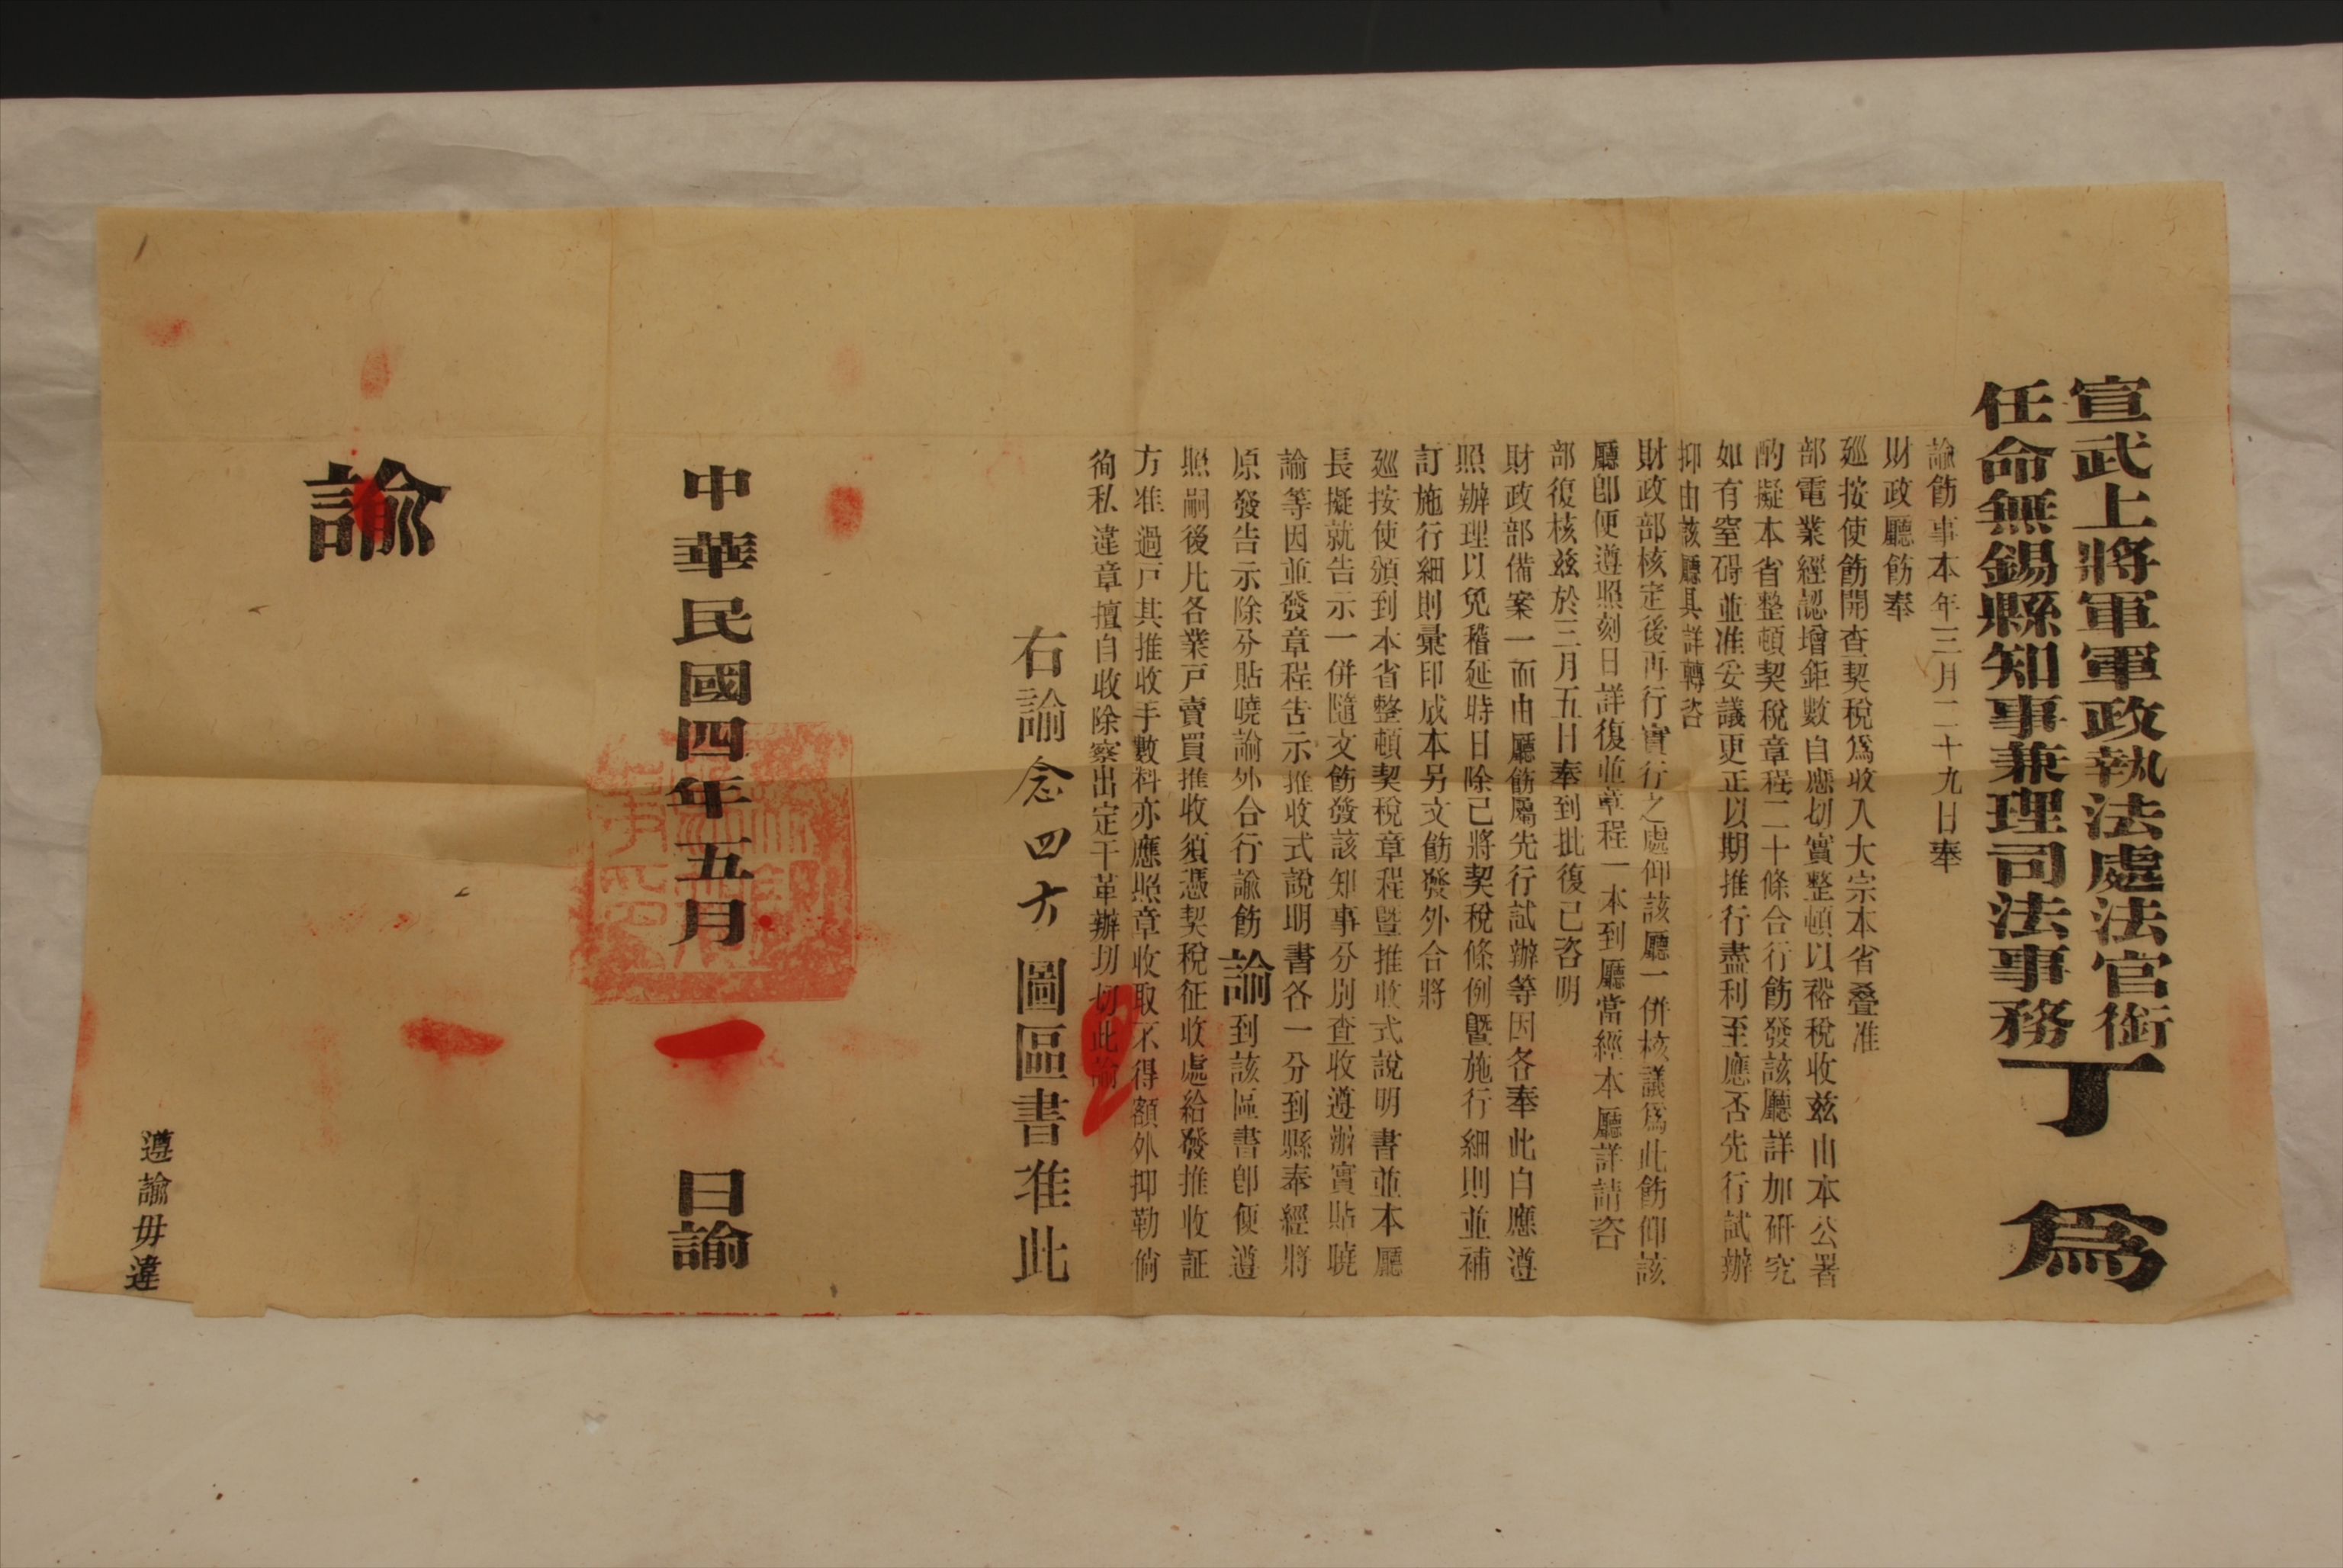 宣武上將軍軍政執法處法官銜
任命無錫縣知事兼理司法事務丁 爲
諭飭事本年三月二十九日奉
財政廳飭奉
巡按使飭開查契税爲收入大宗本省疊准
部電業經認增鉅數自應切實整頓以裕税收兹由本公署
酌擬本省整頓契税章程二十條合行飭發該廳詳加研究
如有窒碍並准妥議更正以期推行盡利至應否先行試辦
抑由該廳具詳轉咨
財政部核定後再行實行之處仰該廳一併核議爲此飭仰該
廳卽便遵照刻日詳復並章程一本到廳當經本廳詳請咨
部復核兹於三月五日奉到批復已咨明
財政部備案一面由廳飭屬先行試辦等因各奉此自應遵
照辦理以免稽延時日除已將契税條例暨施行細則並補
訂施行細則彙印成本另文飭發外合將
巡按使頒到本省整頓契税章程暨推收式說明書並本廳
長擬就告示一併隨文飭發該知事分别查收遵辦實貼曉
諭等因並發章程告示推收式說明書各一分到縣奉經將
原發告示除分貼曉諭外合行諭飭諭到該區書卽便遵
照嗣後凡各業戸賣買推收須憑契税征收處給發推收証
方准過戸其推收手數料亦應照章收取不得額外抑勒倘
徇私違章擅自收除察出定干革辦切切此諭
右諭念四方圖區書准此
中華民國四年五月 一 日諭
諭
遵諭毋違